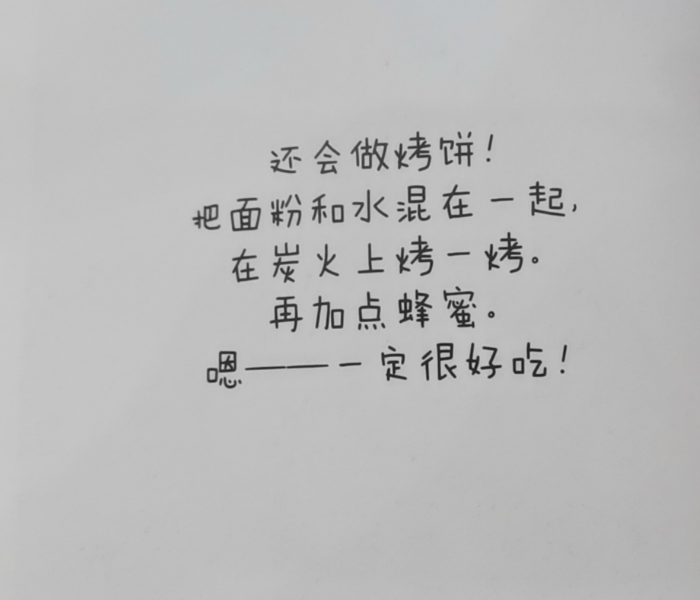 还会做烤饼！
把面粉和水混在一起，
在炭火上烤一烤。
再加点蜂蜜。
嗯——一定很好吃！